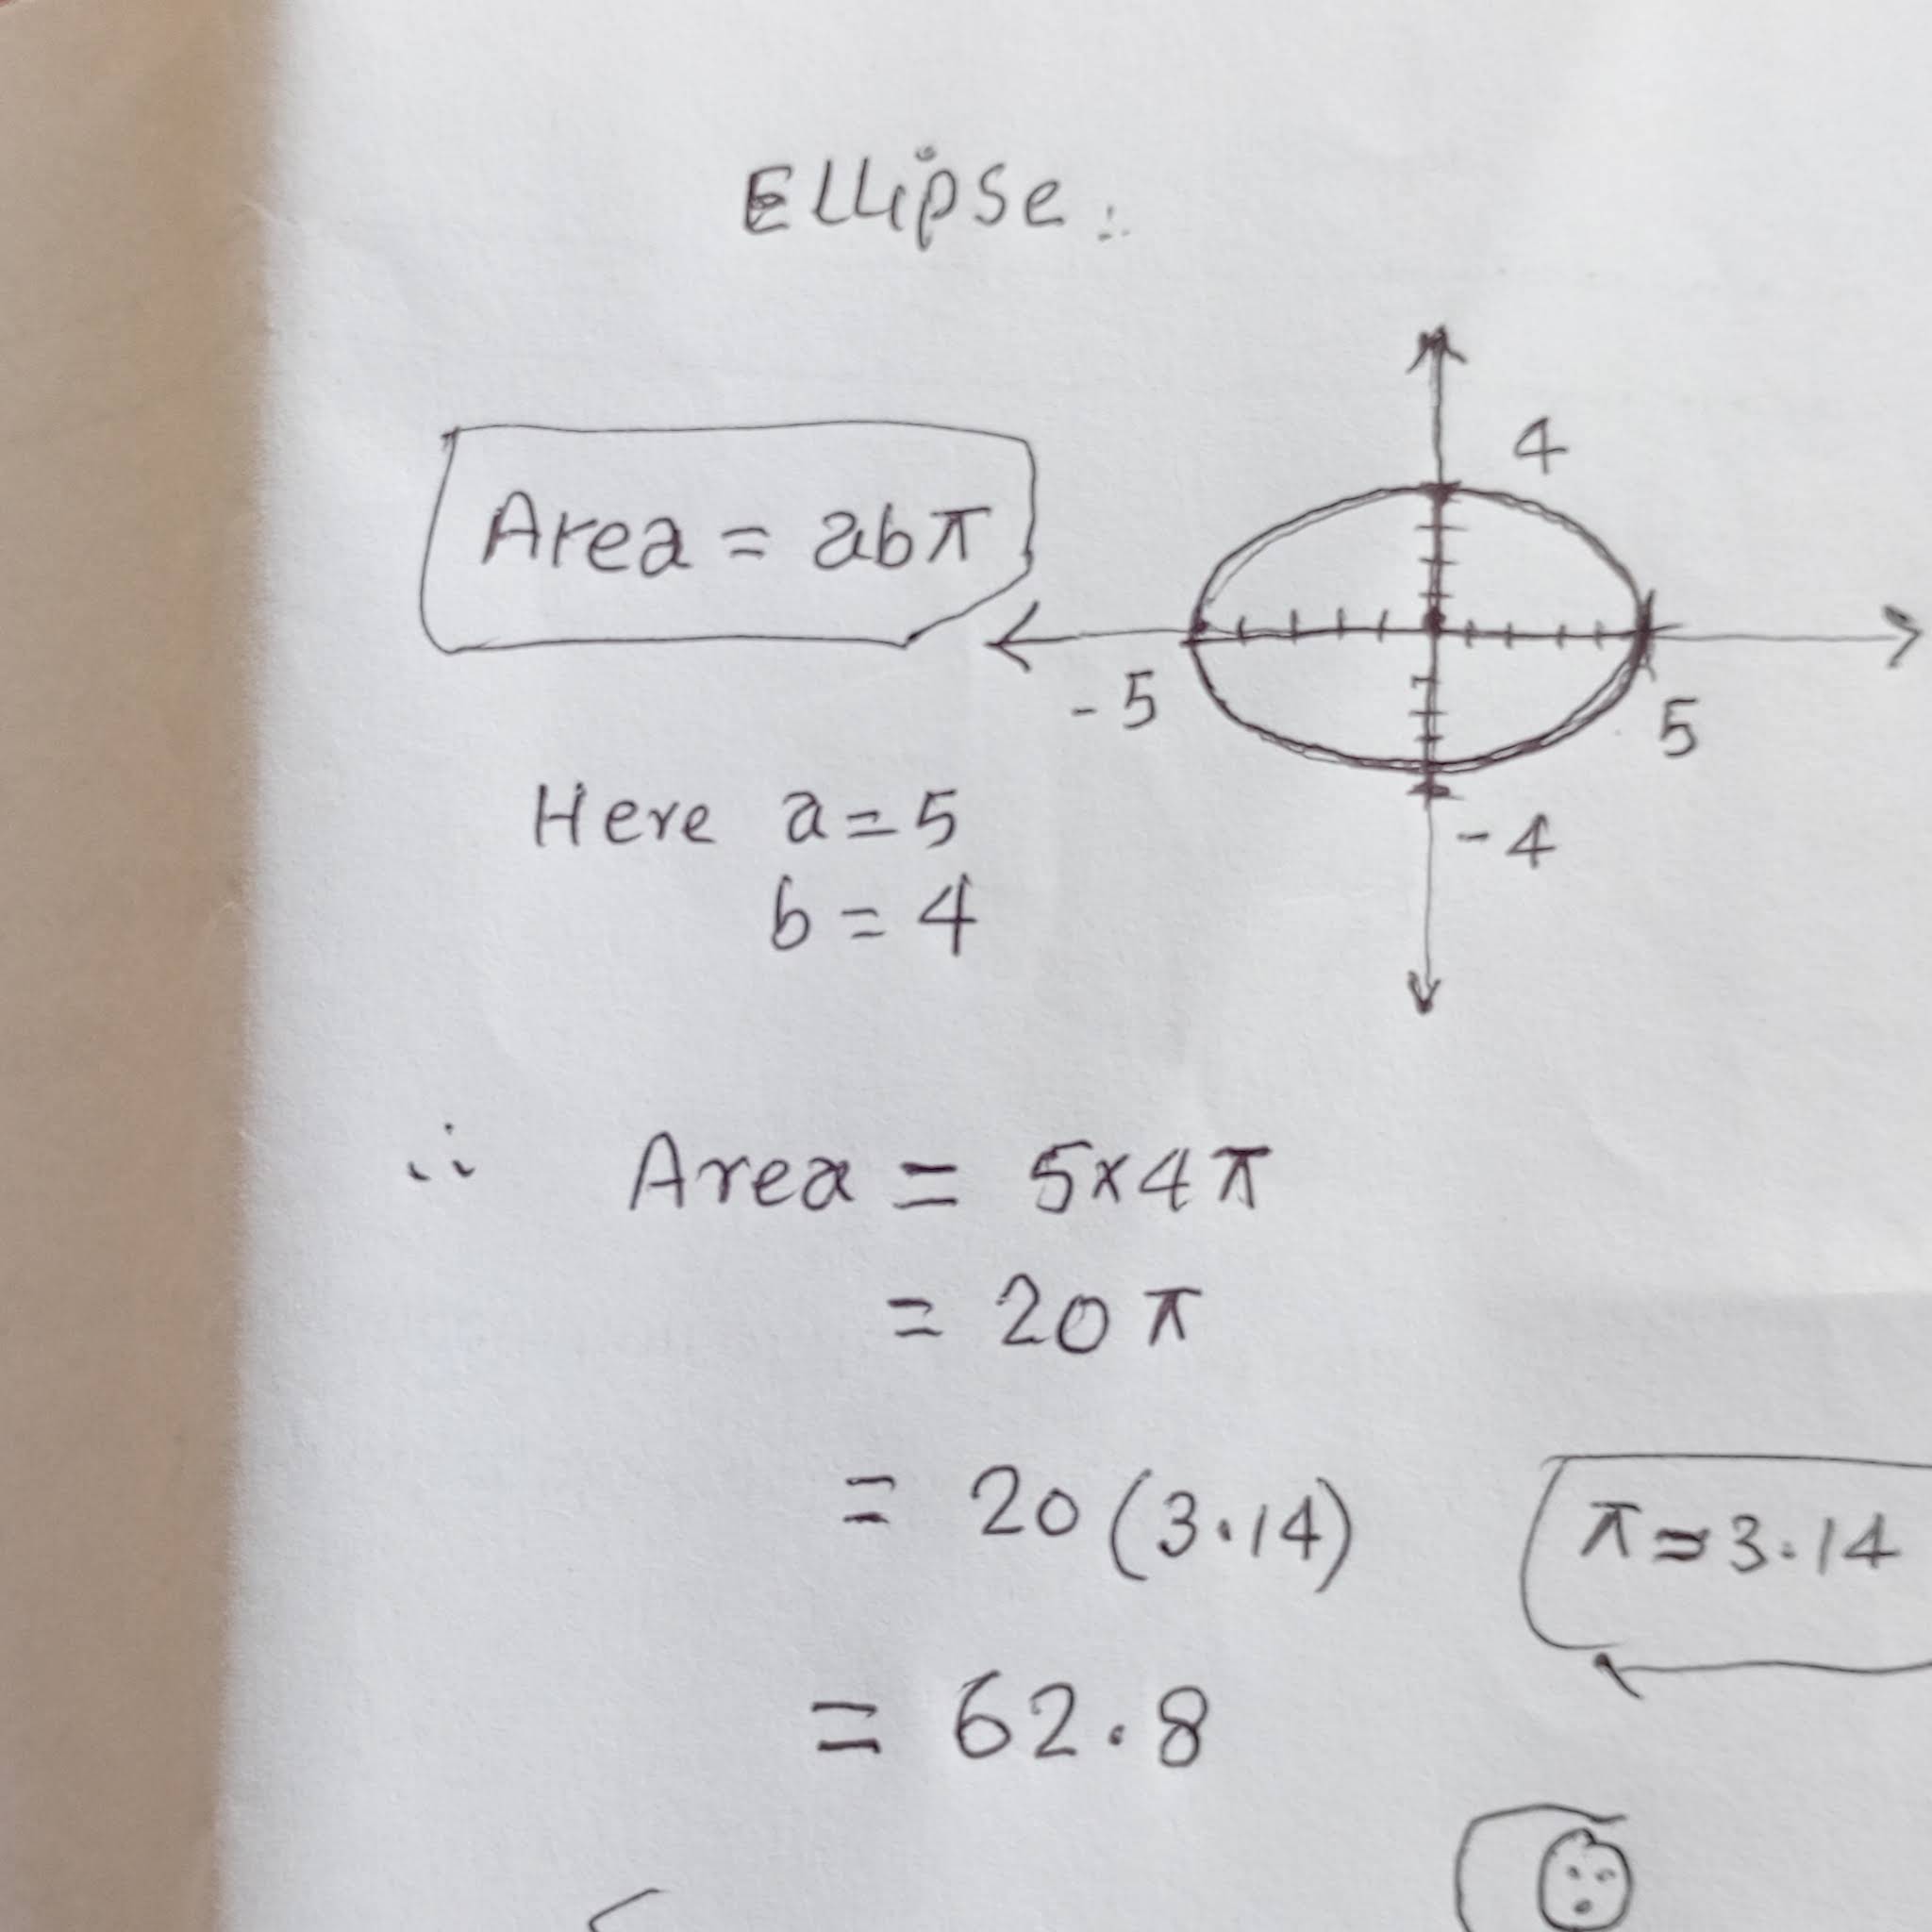 Ellipse:
4
Area = abπ
-5
5
Here a=5
-4
b=4
∴ Area = 5×4π
= 20π
= 20(3.14)
π≈3.14
= 62.8